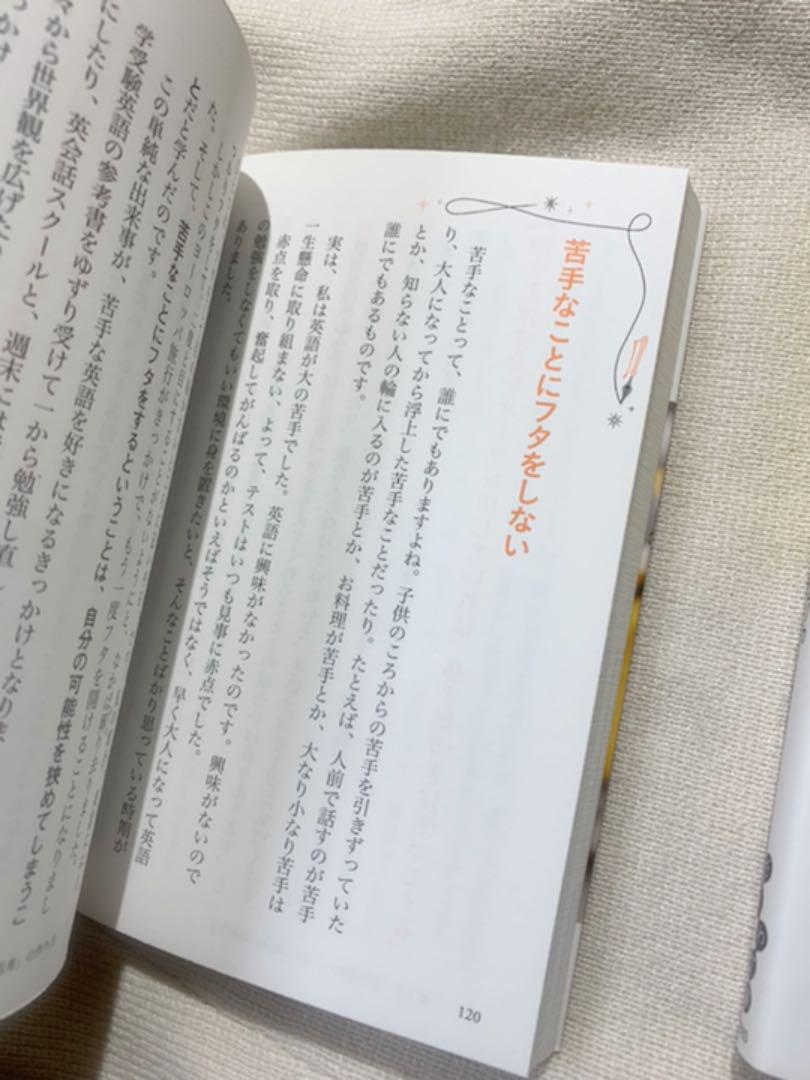 苦手なことにフタをしない
苦手なことって、誰にでもありますよね。子供のころからの苦手を引きずっていた
り、大人になってから浮上した苦手なことだったり。たとえば、人前で話すのが苦手
とか、知らない人の輪に入るのが苦手とか、お料理が苦手とか、大なり小なり苦手は
誰にでもあるものです。
実は、私は英語が大の苦手でした。英語に興味がなかったのです。興味がないので
一生懸命に取り組まない、よって、テストはいつも見事に赤点でした。
赤点を取り、奮起してがんばるのかといえばそうではなく、早く大人になって英語
の勉強をしなくてもいい環境に身を置きたいと、そんなことばかり思っている時期が
ありました。
120
しかしこのヨーロッパ旅行がきっかけで、もう一度フタを開けることになりまし
た。そして、苦手なことにフタをするということは、自分の可能性を狭めてしまうこ
とだと学んだのです。
この単純な出来事が、苦手な英語を好きになるきっかけとなりま
学受験英語の参考書をゆずり受けて一から勉強し直
にしたり、英会話スクールと、週末には
々から世界観を広げた